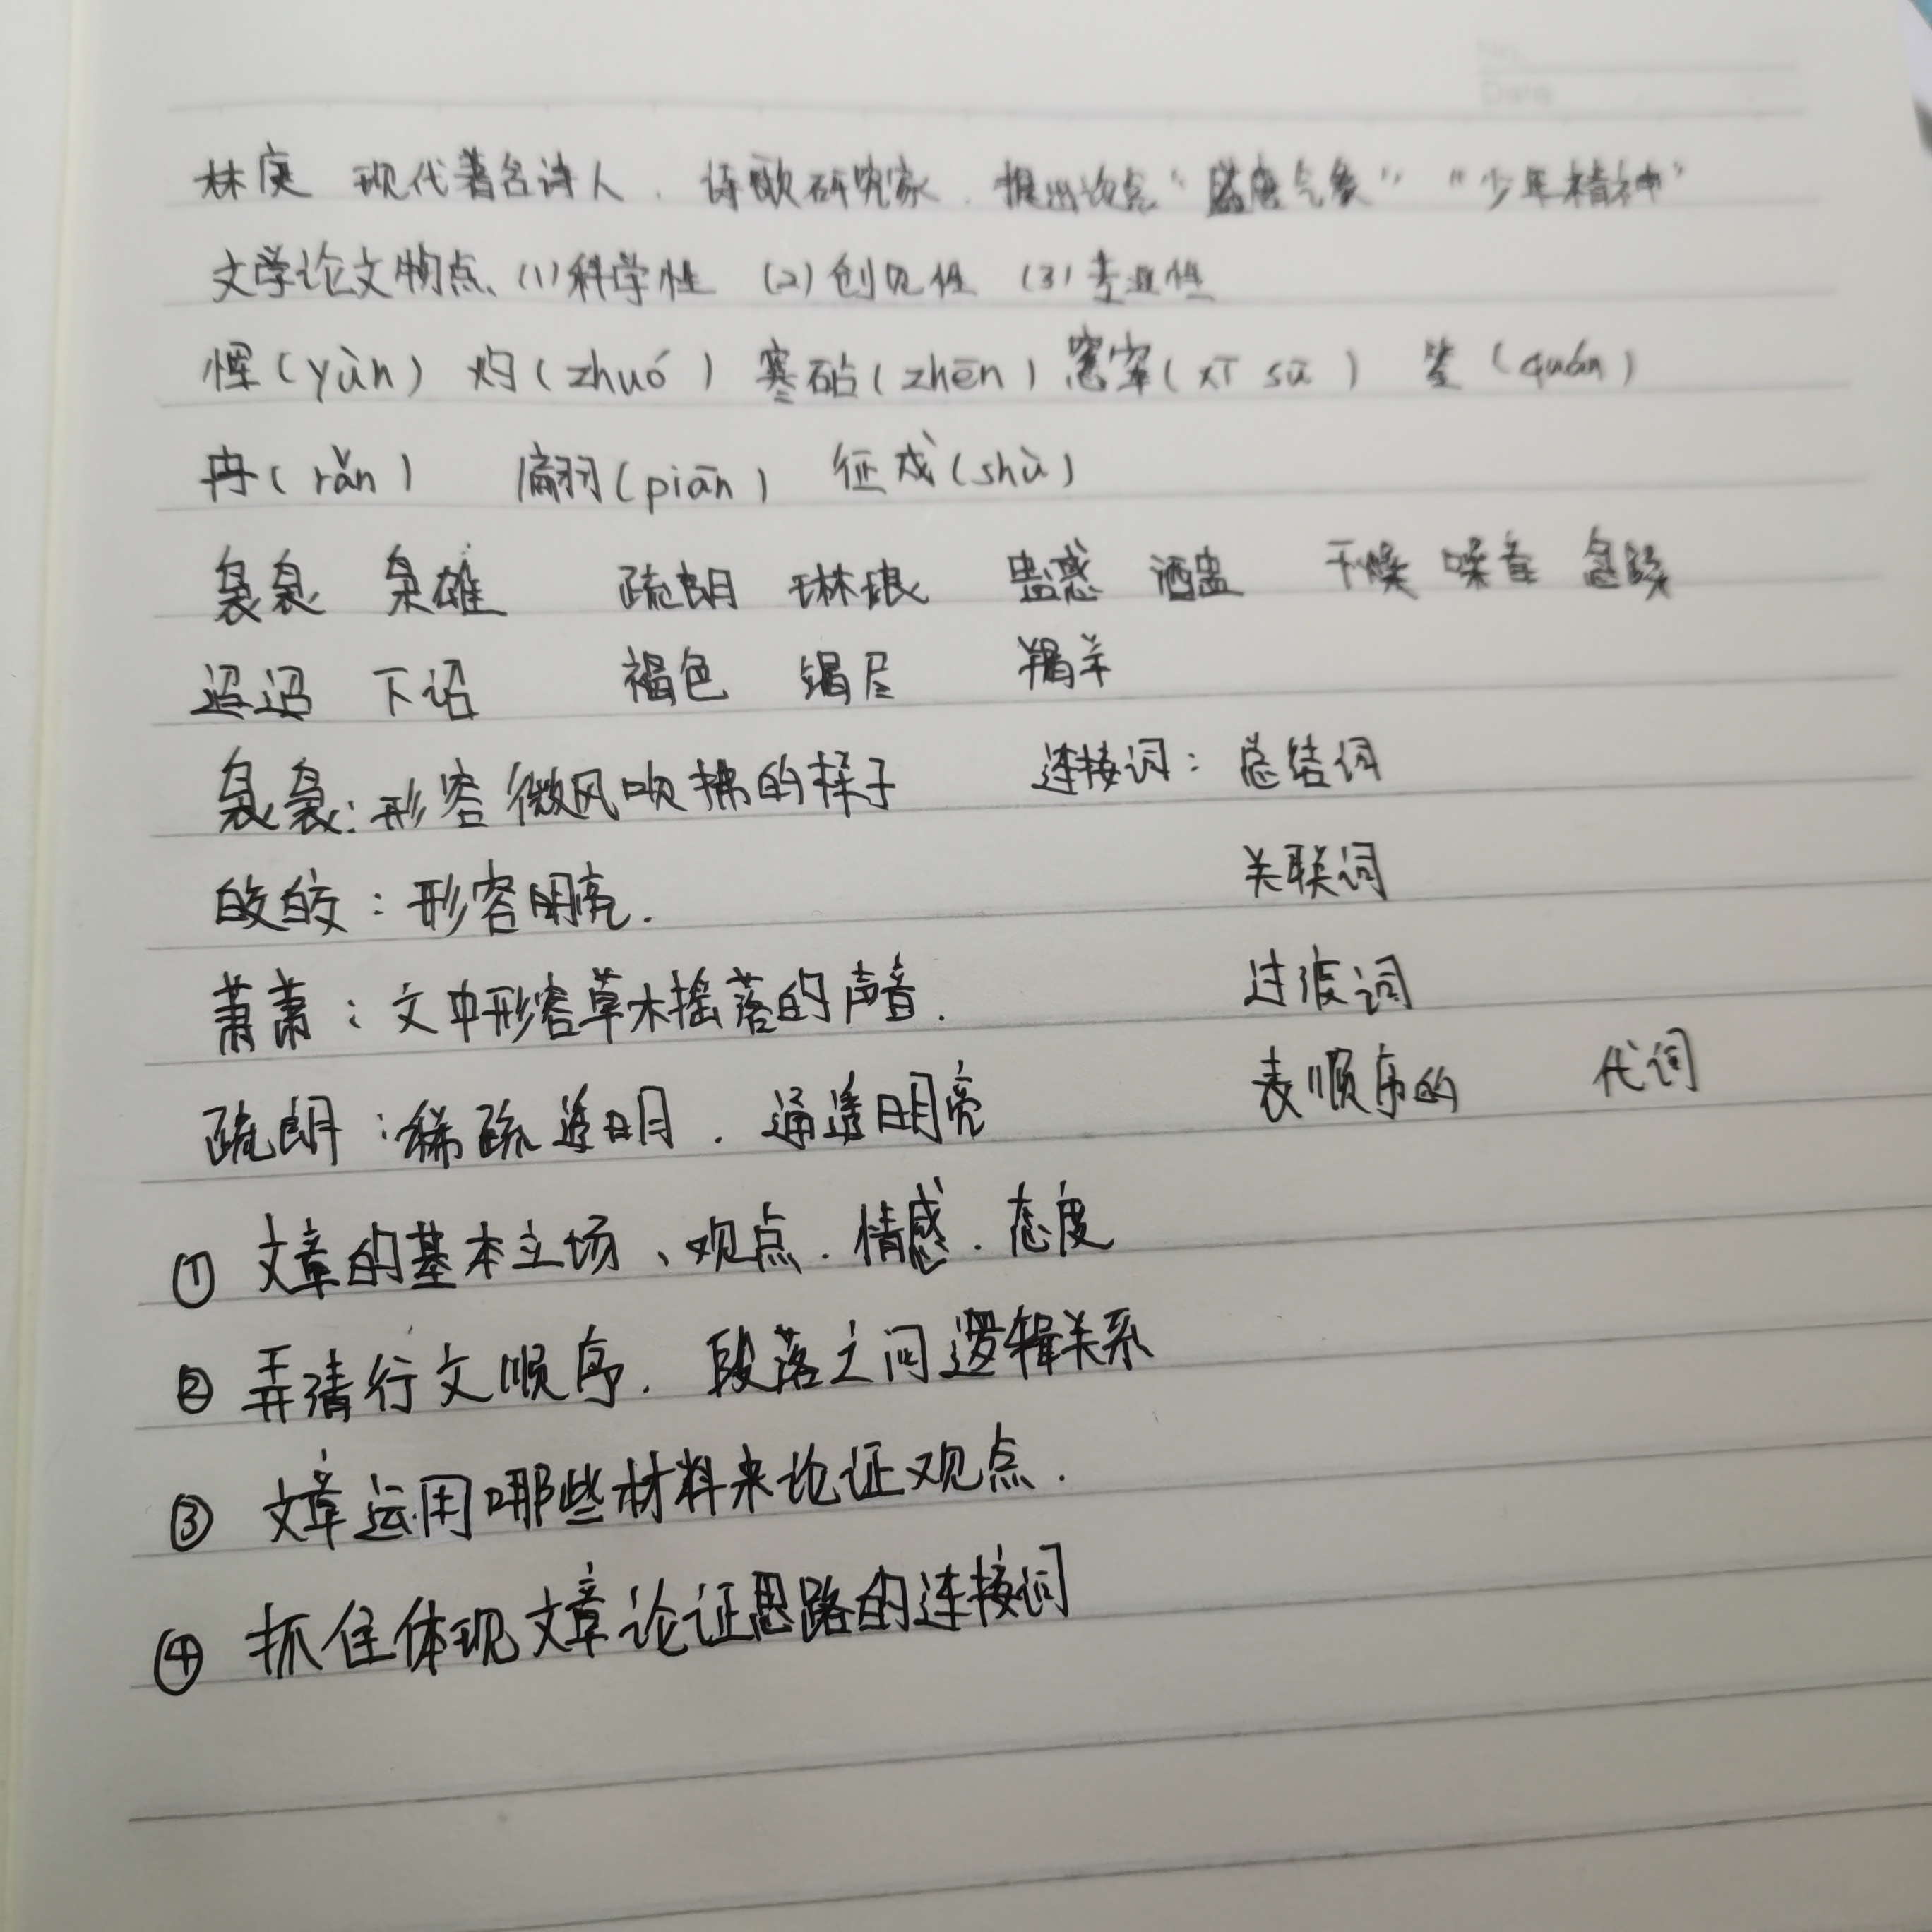 林庚 现代著名诗人. 诗歌研究家. 提出论点“盛唐气象”“少年精神”
文学论文特点、(1)科学性 (2)创见性 (3)专业性
恽(yùn) 灼(zhuó) 寒砧(zhēn) 窸窣(xī sū) 筌(quán)
冉(rǎn) 翩(piān) 征戍(shù)
袅袅 枭雄 疏朗 琳琅 蛊惑 酒盅 干燥 噪音 急躁
迢迢 下诏 褐色 竭尽 羯羊
袅袅:形容微风吹拂的样子 连接词:总结词
皎皎:形容明亮. 关联词
萧萧:文中形容草木摇落的声音. 过渡词
疏朗:稀疏透明.通透明亮 表顺序的 代词
① 文章的基本立场、观点.情感.态度
② 弄清行文顺序.段落之间逻辑关系
③ 文章运用哪些材料来论证观点.
④ 抓住体现文章论证思路的连接词